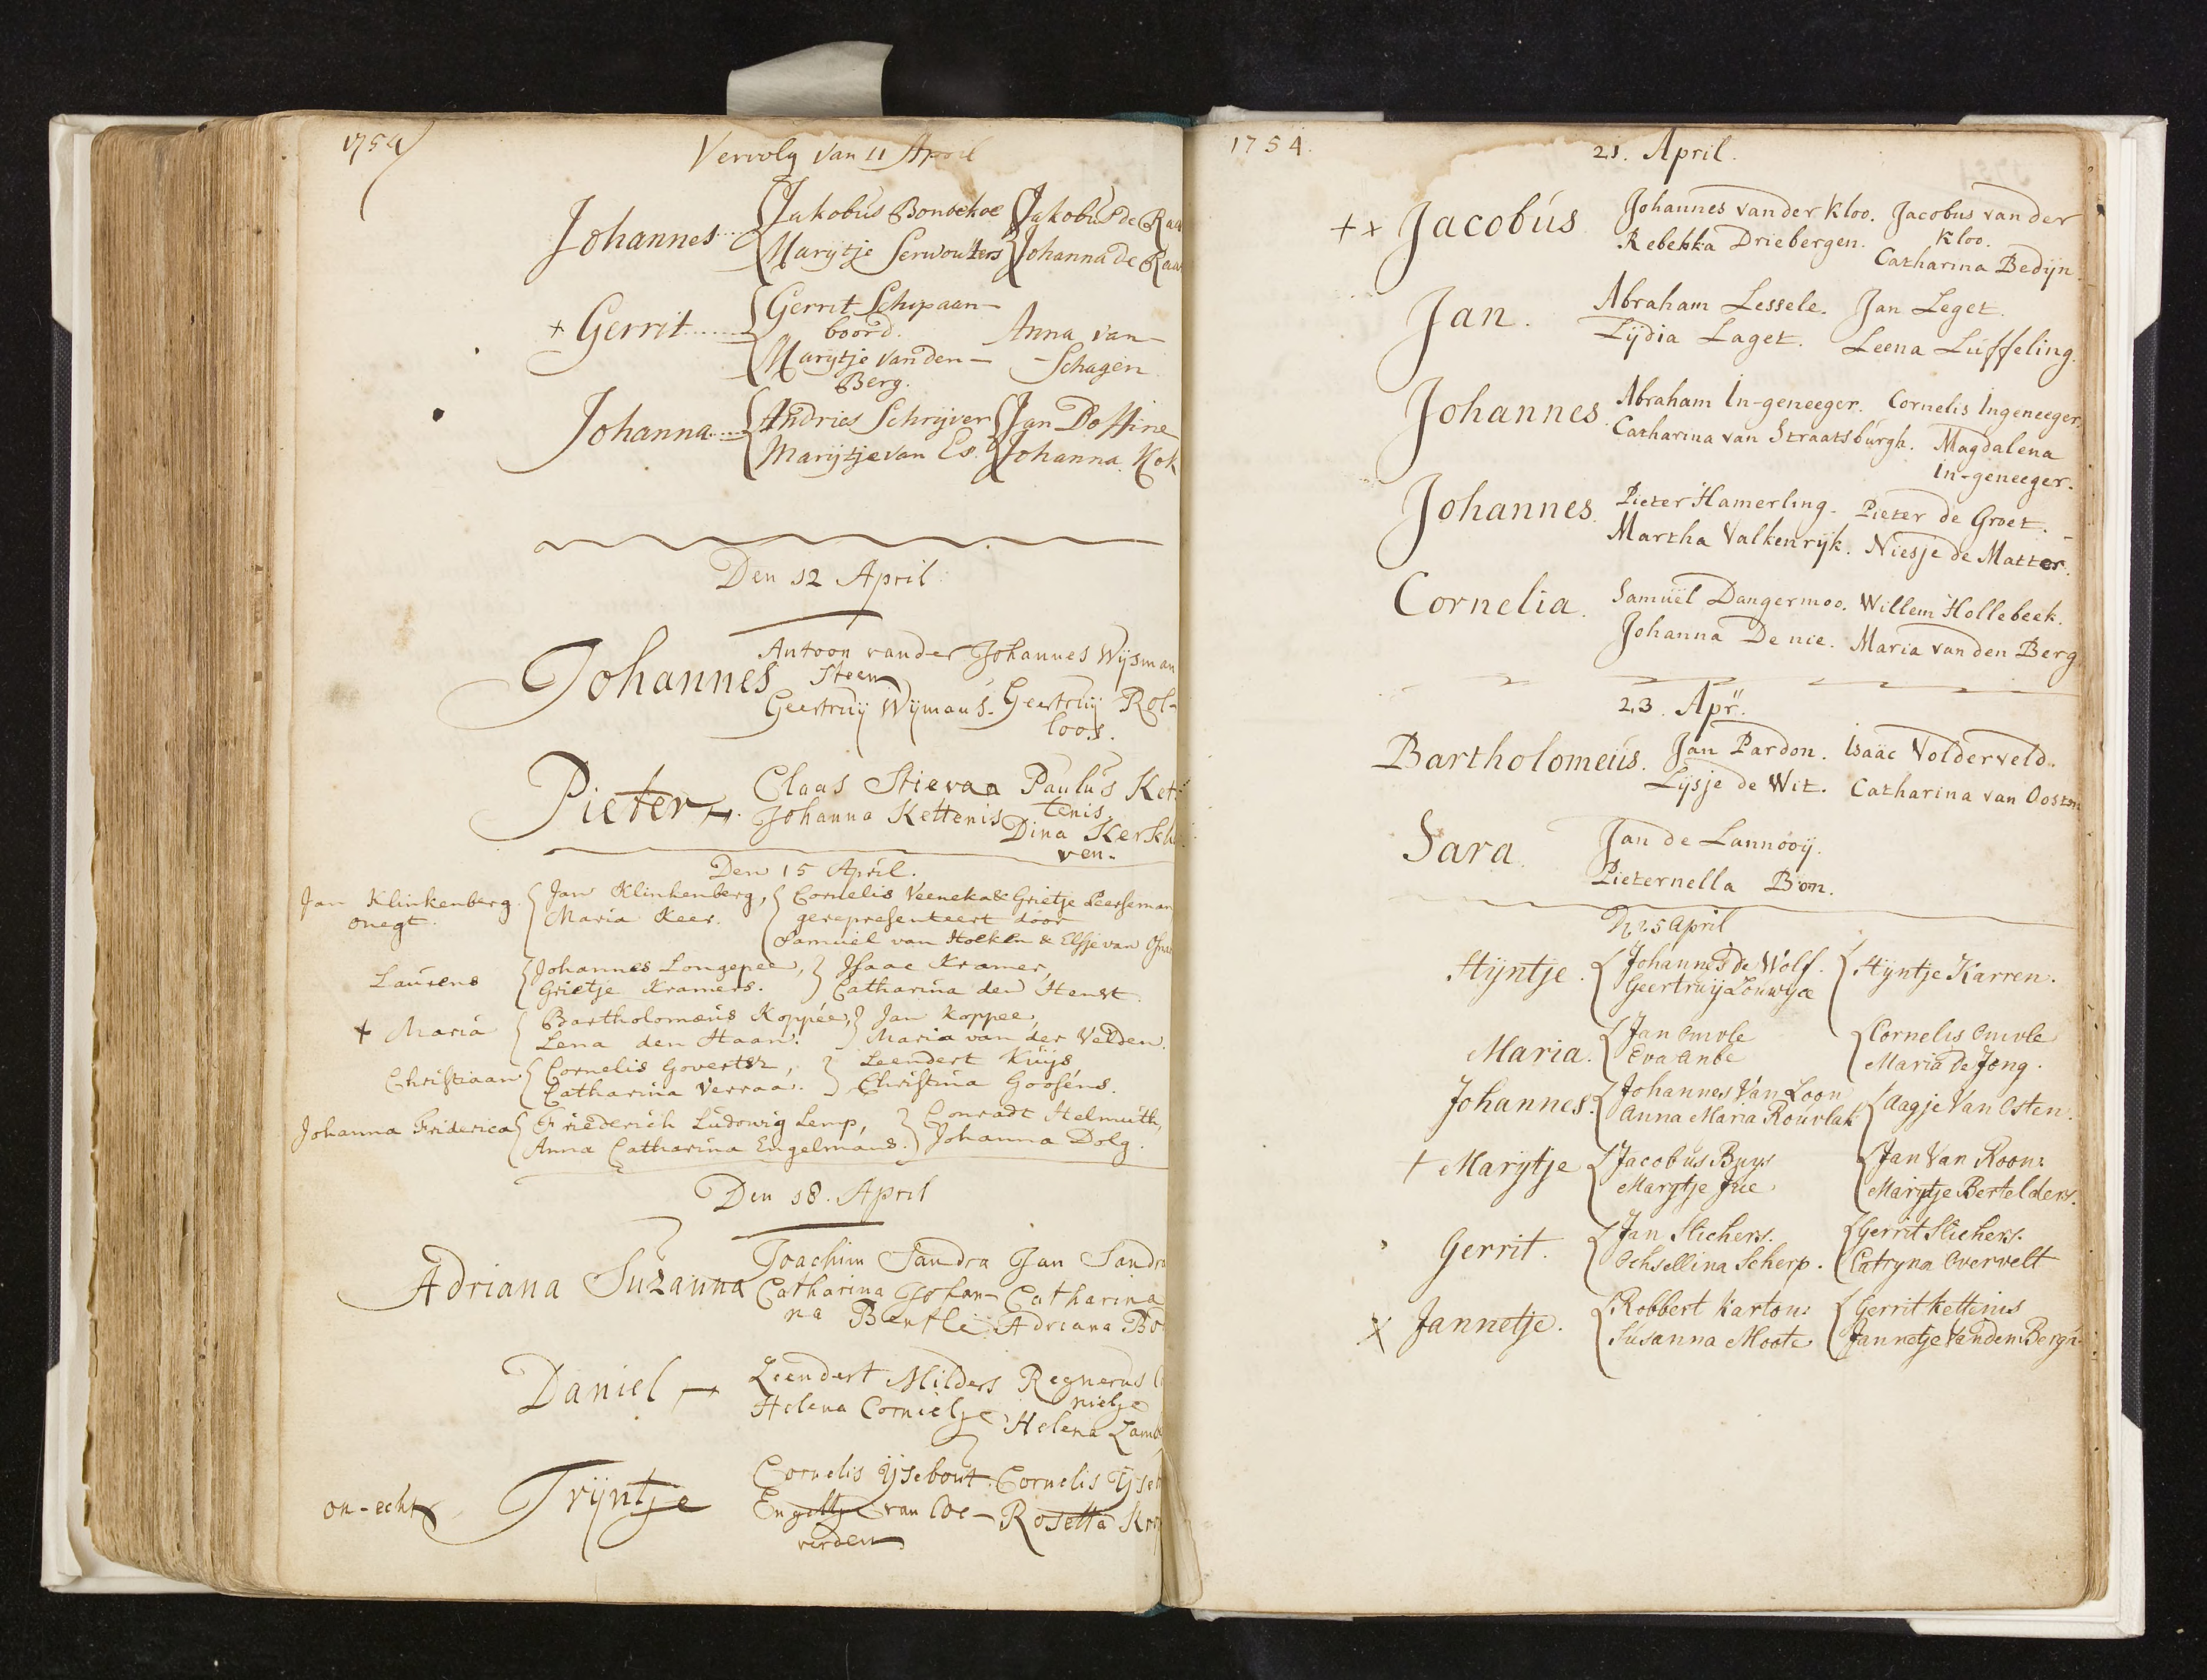 1754
Vervolg van 11 April
Johannes Jakobus Bonsekoe Jakobus de Raa
Marijtje Serwouters Johanna de Raa
+ Gerrit Gerrit Schipaan-
boord. Anna van
Marijtje van den - Schagen
Berg.
Johanna Andries Schrijver Jan Doffine
Marijtje van Es. Johanna Kok
Den 12 April
Johannes Antoon vander Johannes Wijsman
Steen
Geertruij Wijmans. Geertruij Rol-
loos.
Pieter Claas Stievaa Paulus Ket-
Johanna Kettenis tenis
Dina Kerkho
ven.
Den 15 April.
Jan Klinkenberg Jan Klinkenberg, Cornelis Veeneka & Grietje Leerseman
onegt. Maria Keer. gerepresenteert door
Samuel van Hoekke & Elsje van
Laurens Johannes Longepee, Isaac Kramer,
Grietje Kramers. Catharina den Henst.
+ Maria Bartholomeus Koppée, Jan Koppee,
Lena den Haan. Maria van der Velden.
Christiaan Cornelis Govertsz, Leendert Kuijs
Catharina Verraa. Christina Goosens.
Johanna Friderica Friederich Ludowig Lemp, Conradt Helmuth,
Anna Catharina Engelmans. Johanna Dolg.
Den 18. April
Adriana Suzanna Joachim Sandra Jan Sandra
Catharina Johan- Catharina
na Bentle Adriana Bo
Daniel Leendert Milders Regnerus
Helena Cornielje nielje
Helena Lamb
on-echt Trijntje Cornelis Ijsebout. Cornelis Ijseb
Engeltje van Coe- Rosetta
verden
1754.
21. April.
++ Jacobus Johannes van der Kloo. Jacobus van der
Rebekka Driebergen. Kloo.
Catharina Bedijn.
Jan. Abraham Lessele. Jan Leget.
Lijdia Laget. Leena Luffeling.
Johannes. Abraham In-geneeger. Cornelis Ingeneeger.
Catharina van Straatsburgh. Magdalena
In-geneeger.
Johannes. Pieter Hamerling. Pieter de Groet.
Martha Valkenrijk. Niesje de Matter.
Cornelia. Samuël Dangermoo. Willem Hollebeek.
Johanna De nie. Maria van den Berg
23. Apr.
Bartholomeüs. Jan Pardon. Isaäc Volderveld.
Lijsje de Wit. Catharina van Oosten
Sara. Jan de Lannooij.
Pieternella Bon.
Dn 25 April
Stijntje. Johannes De Wolf. Stijntje Karren.
Geertruij Louwije
Maria. Jan Omvle Cornelis Omvle
Eva Anbe Maria De Jong.
Johannes. Johannes Van Loon Aagje Van Osten.
Anna Maria Rouvlak
+ Marijtje Jacobus Buys Jan Van Roon:
Marijtje Jue Marijtje Bertelders.
Gerrit. Jan Slichers. Gerrit Slichers.
Ochsellina Scherp. Catryna Overvelt
X Jannetje. Robbert Karton: Gerrit Kettenis
Susanna Moote Jannetje Van den Bergh